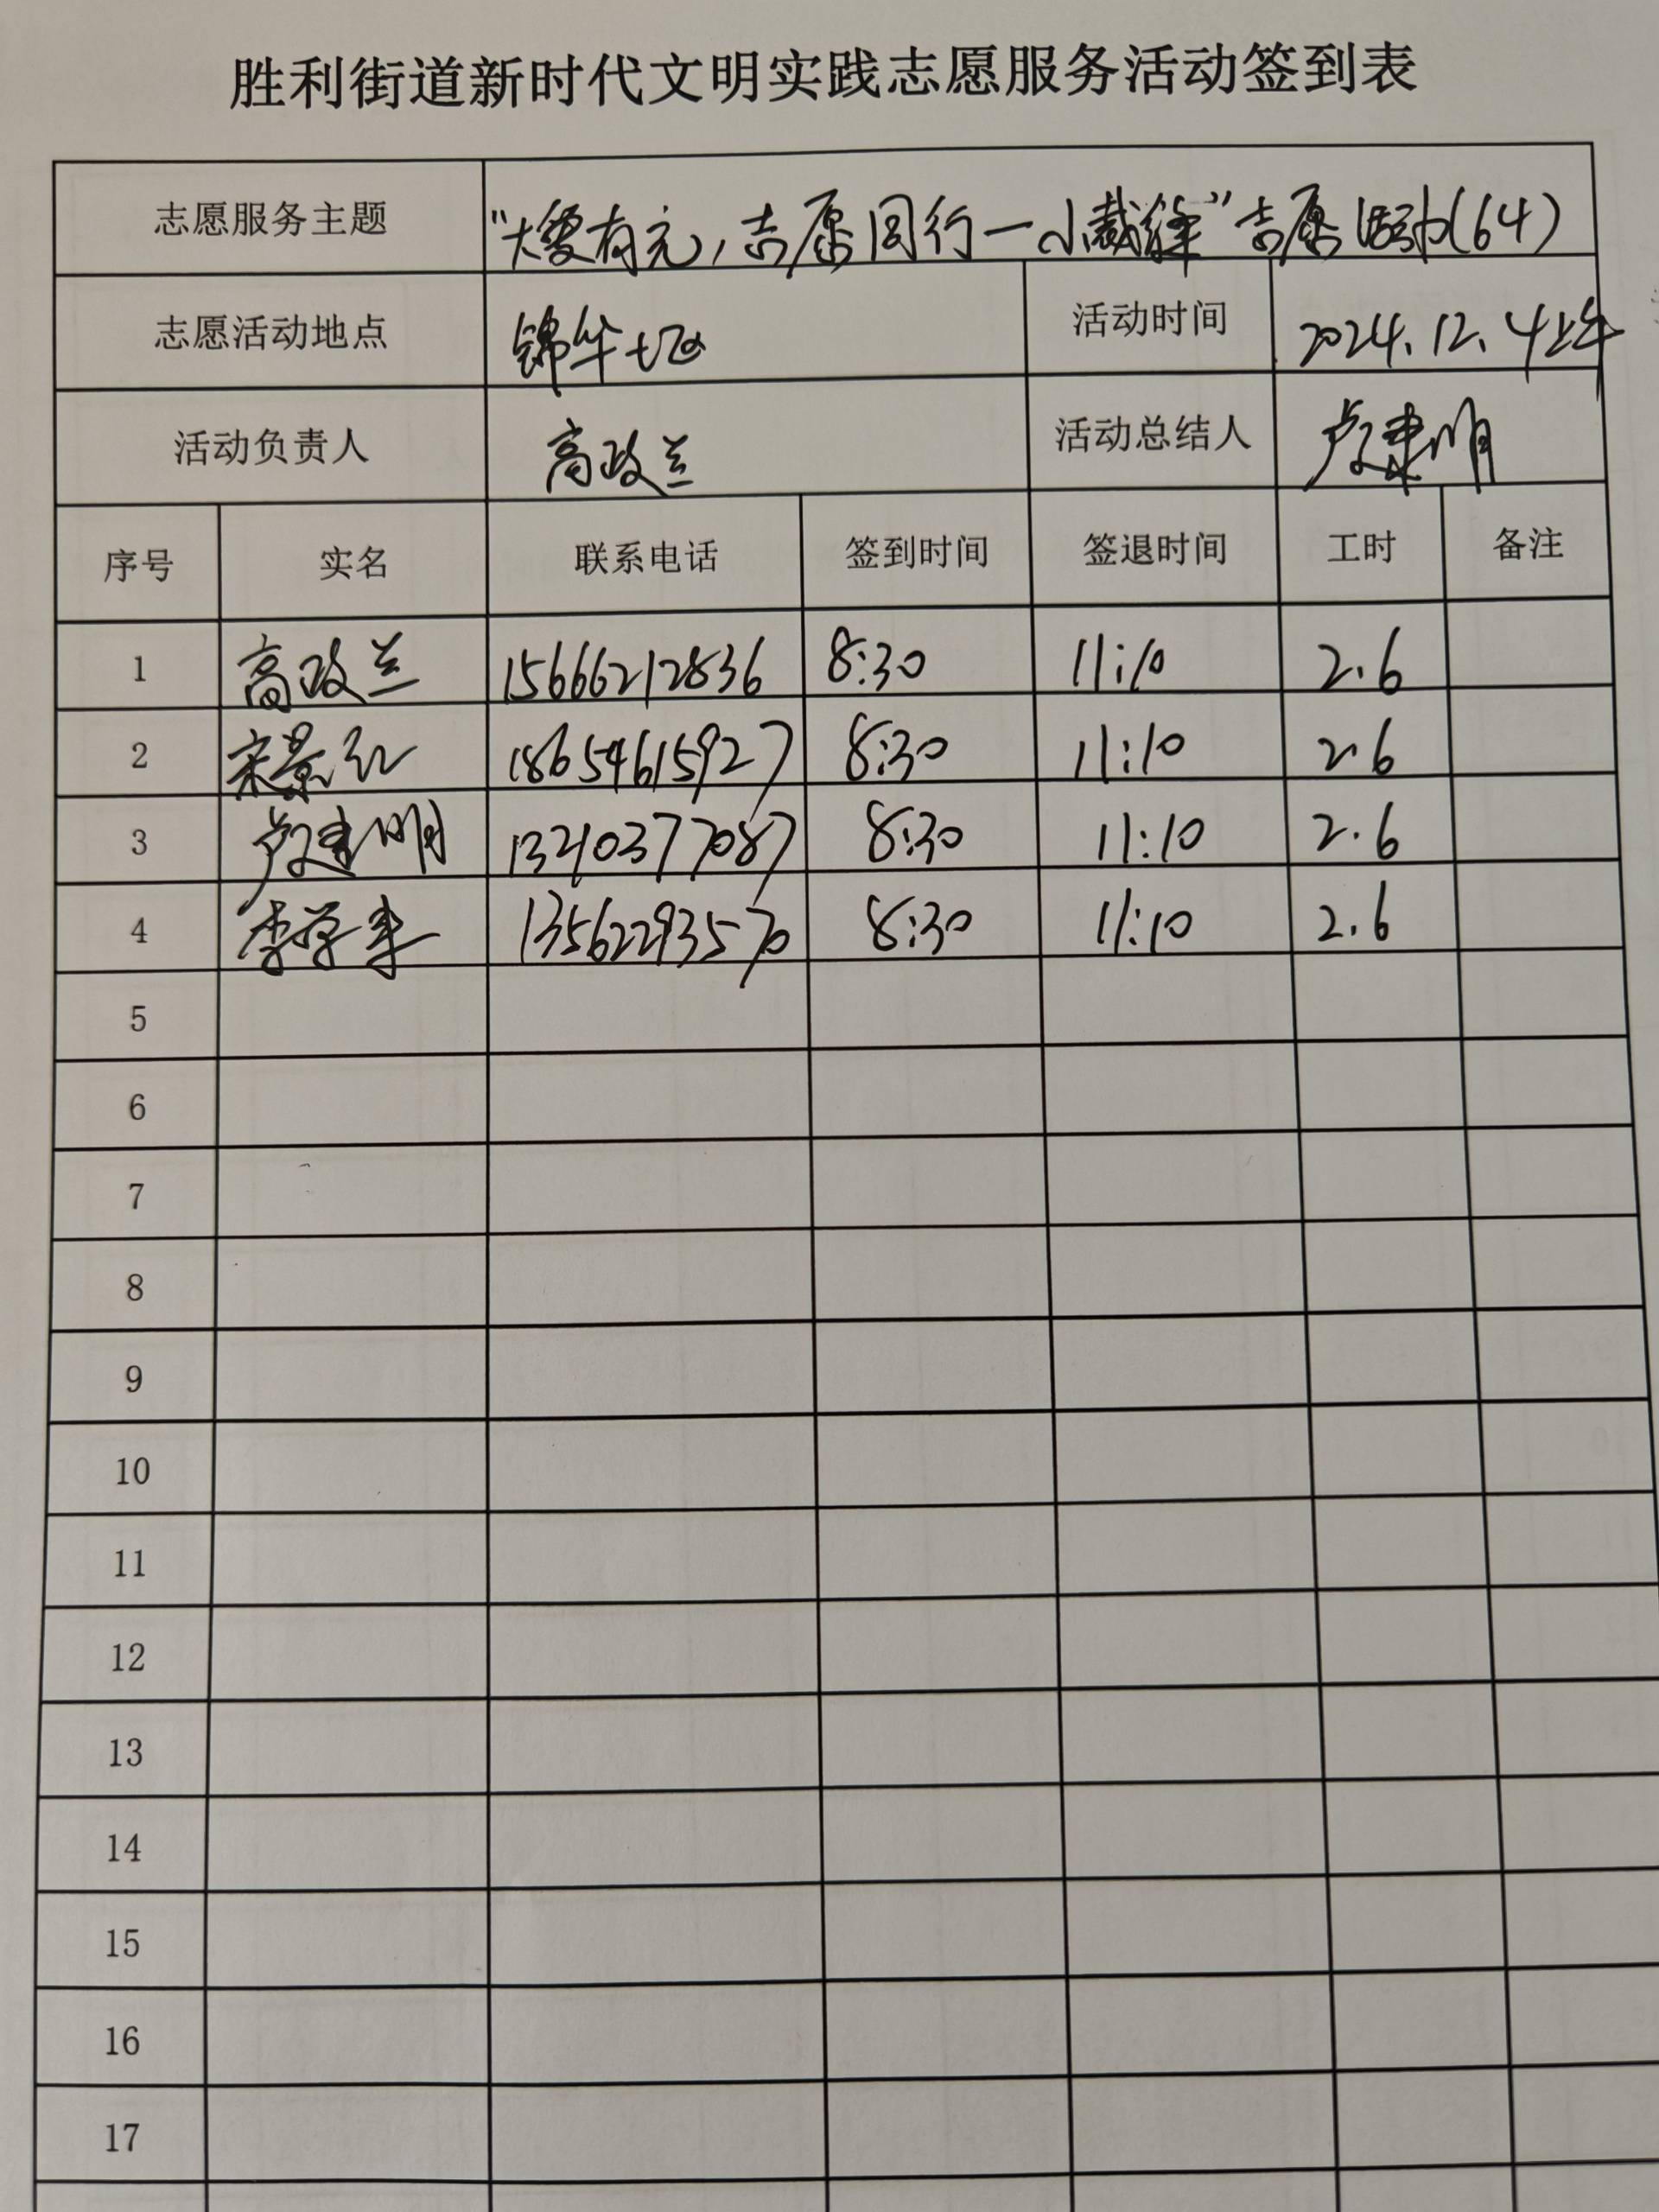 胜利街道新时代文明实践志愿服务活动签到表
志愿服务主题 "大爱有元，志愿同行一小裁缝"志愿活动(64)
志愿活动地点 锦华七区 活动时间 2024.12.4上午
活动负责人 高政兰 活动总结人 卢建明
序号 实名 联系电话 签到时间 签退时间 工时 备注
1 高政兰 15666212836 8:30 11:10 2.6
2 宋景红 18654615927 8:30 11:10 2.6
3 卢建明 13210377087 8:30 11:10 2.6
4 李学 13562293570 8:30 11:10 2.6
5
6
7
8
9
10
11
12
13
14
15
16
17